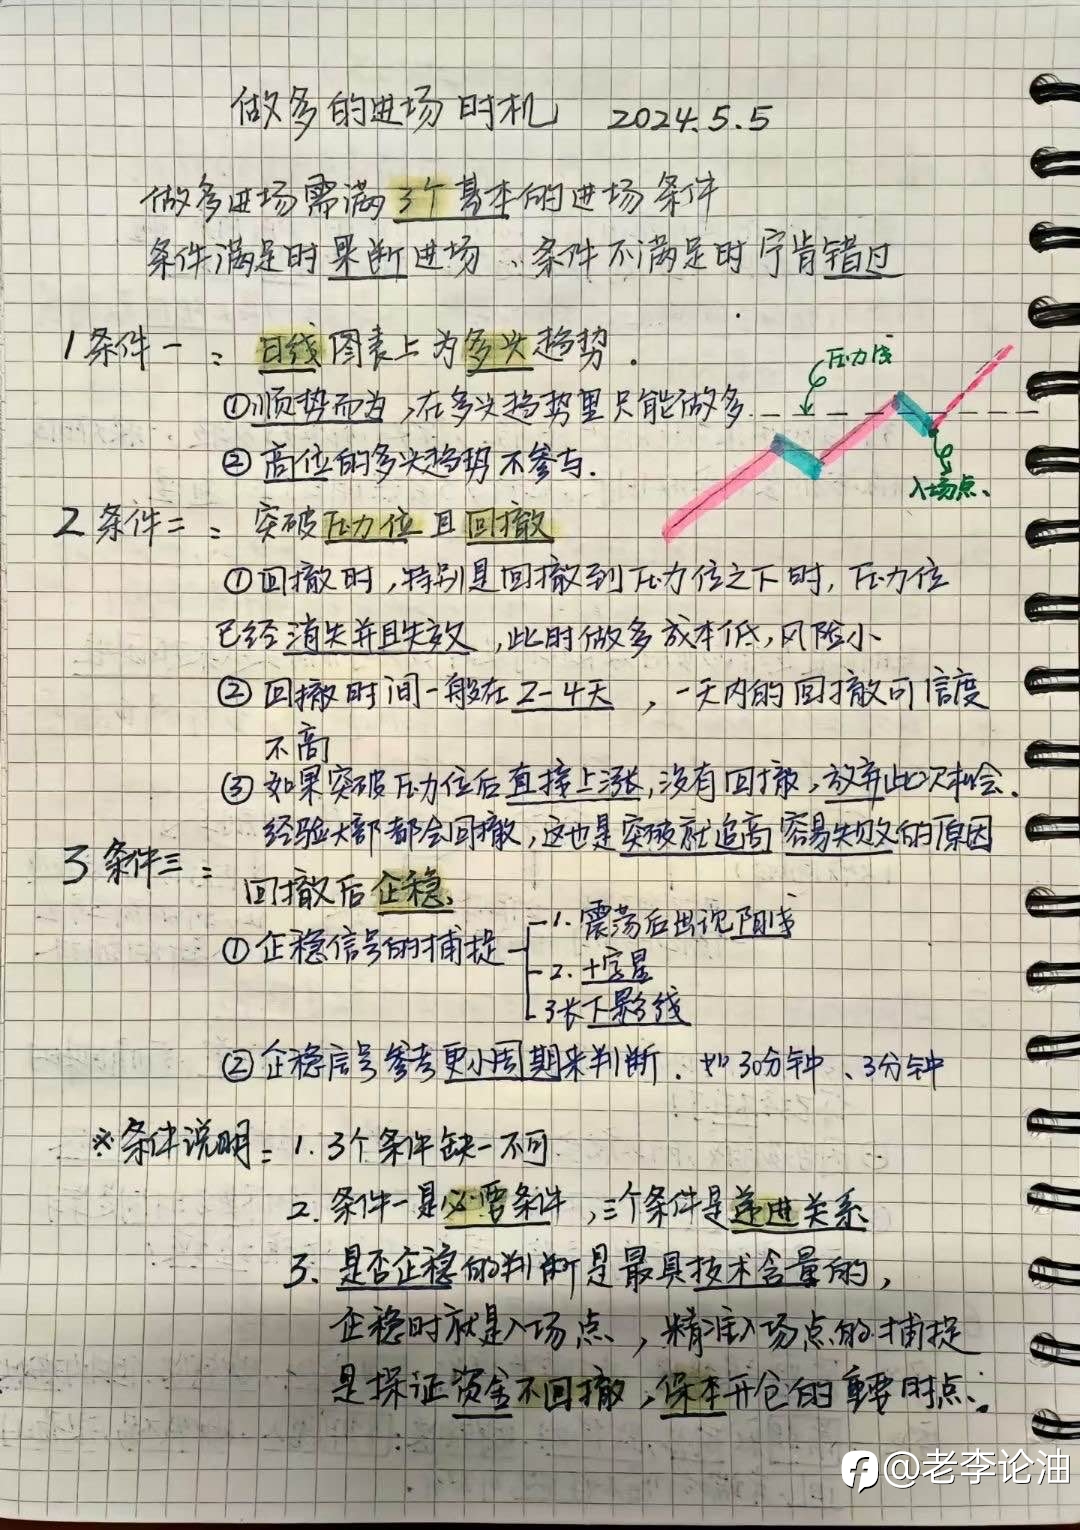 做多的进场时机 2024.5.5
做多进场需满3个基本的进场条件
条件满足时果断进场、条件不满足时宁肯错过
1 条件一：日线图表上为多头趋势.
①顺势而为，在多头趋势里只能做多
②高位的多头趋势不参与.
压力线
入场点、
2 条件二：突破压力位且回撤
①回撤时，特别是回撤到压力位之下时，压力位
已经消失并且失效，此时做多成本低，风险小
②回撤时间一般在2-4天，一天内的回撤可信度
不高
③如果突破压力位后直接上涨，没有回撤，放弃此次机会.
经验大部都会回撤，这也是突破就追高容易失败的原因
3 条件三：
回撤后企稳.
①企稳信号的捕捉
1. 震荡后出现阳线
2. 十字星
3长下影线
②企稳信号参考更小周期来判断. 如30分钟、3分钟
※条件说明：1. 3个条件缺一不可
2. 条件一是必要条件，三个条件是递进关系
3. 是否企稳的判断是最具技术含量的，
企稳时就是入场点，精准入场点的捕捉
是探证资金不回撤，保本开仓的重要时点.
@老李论油